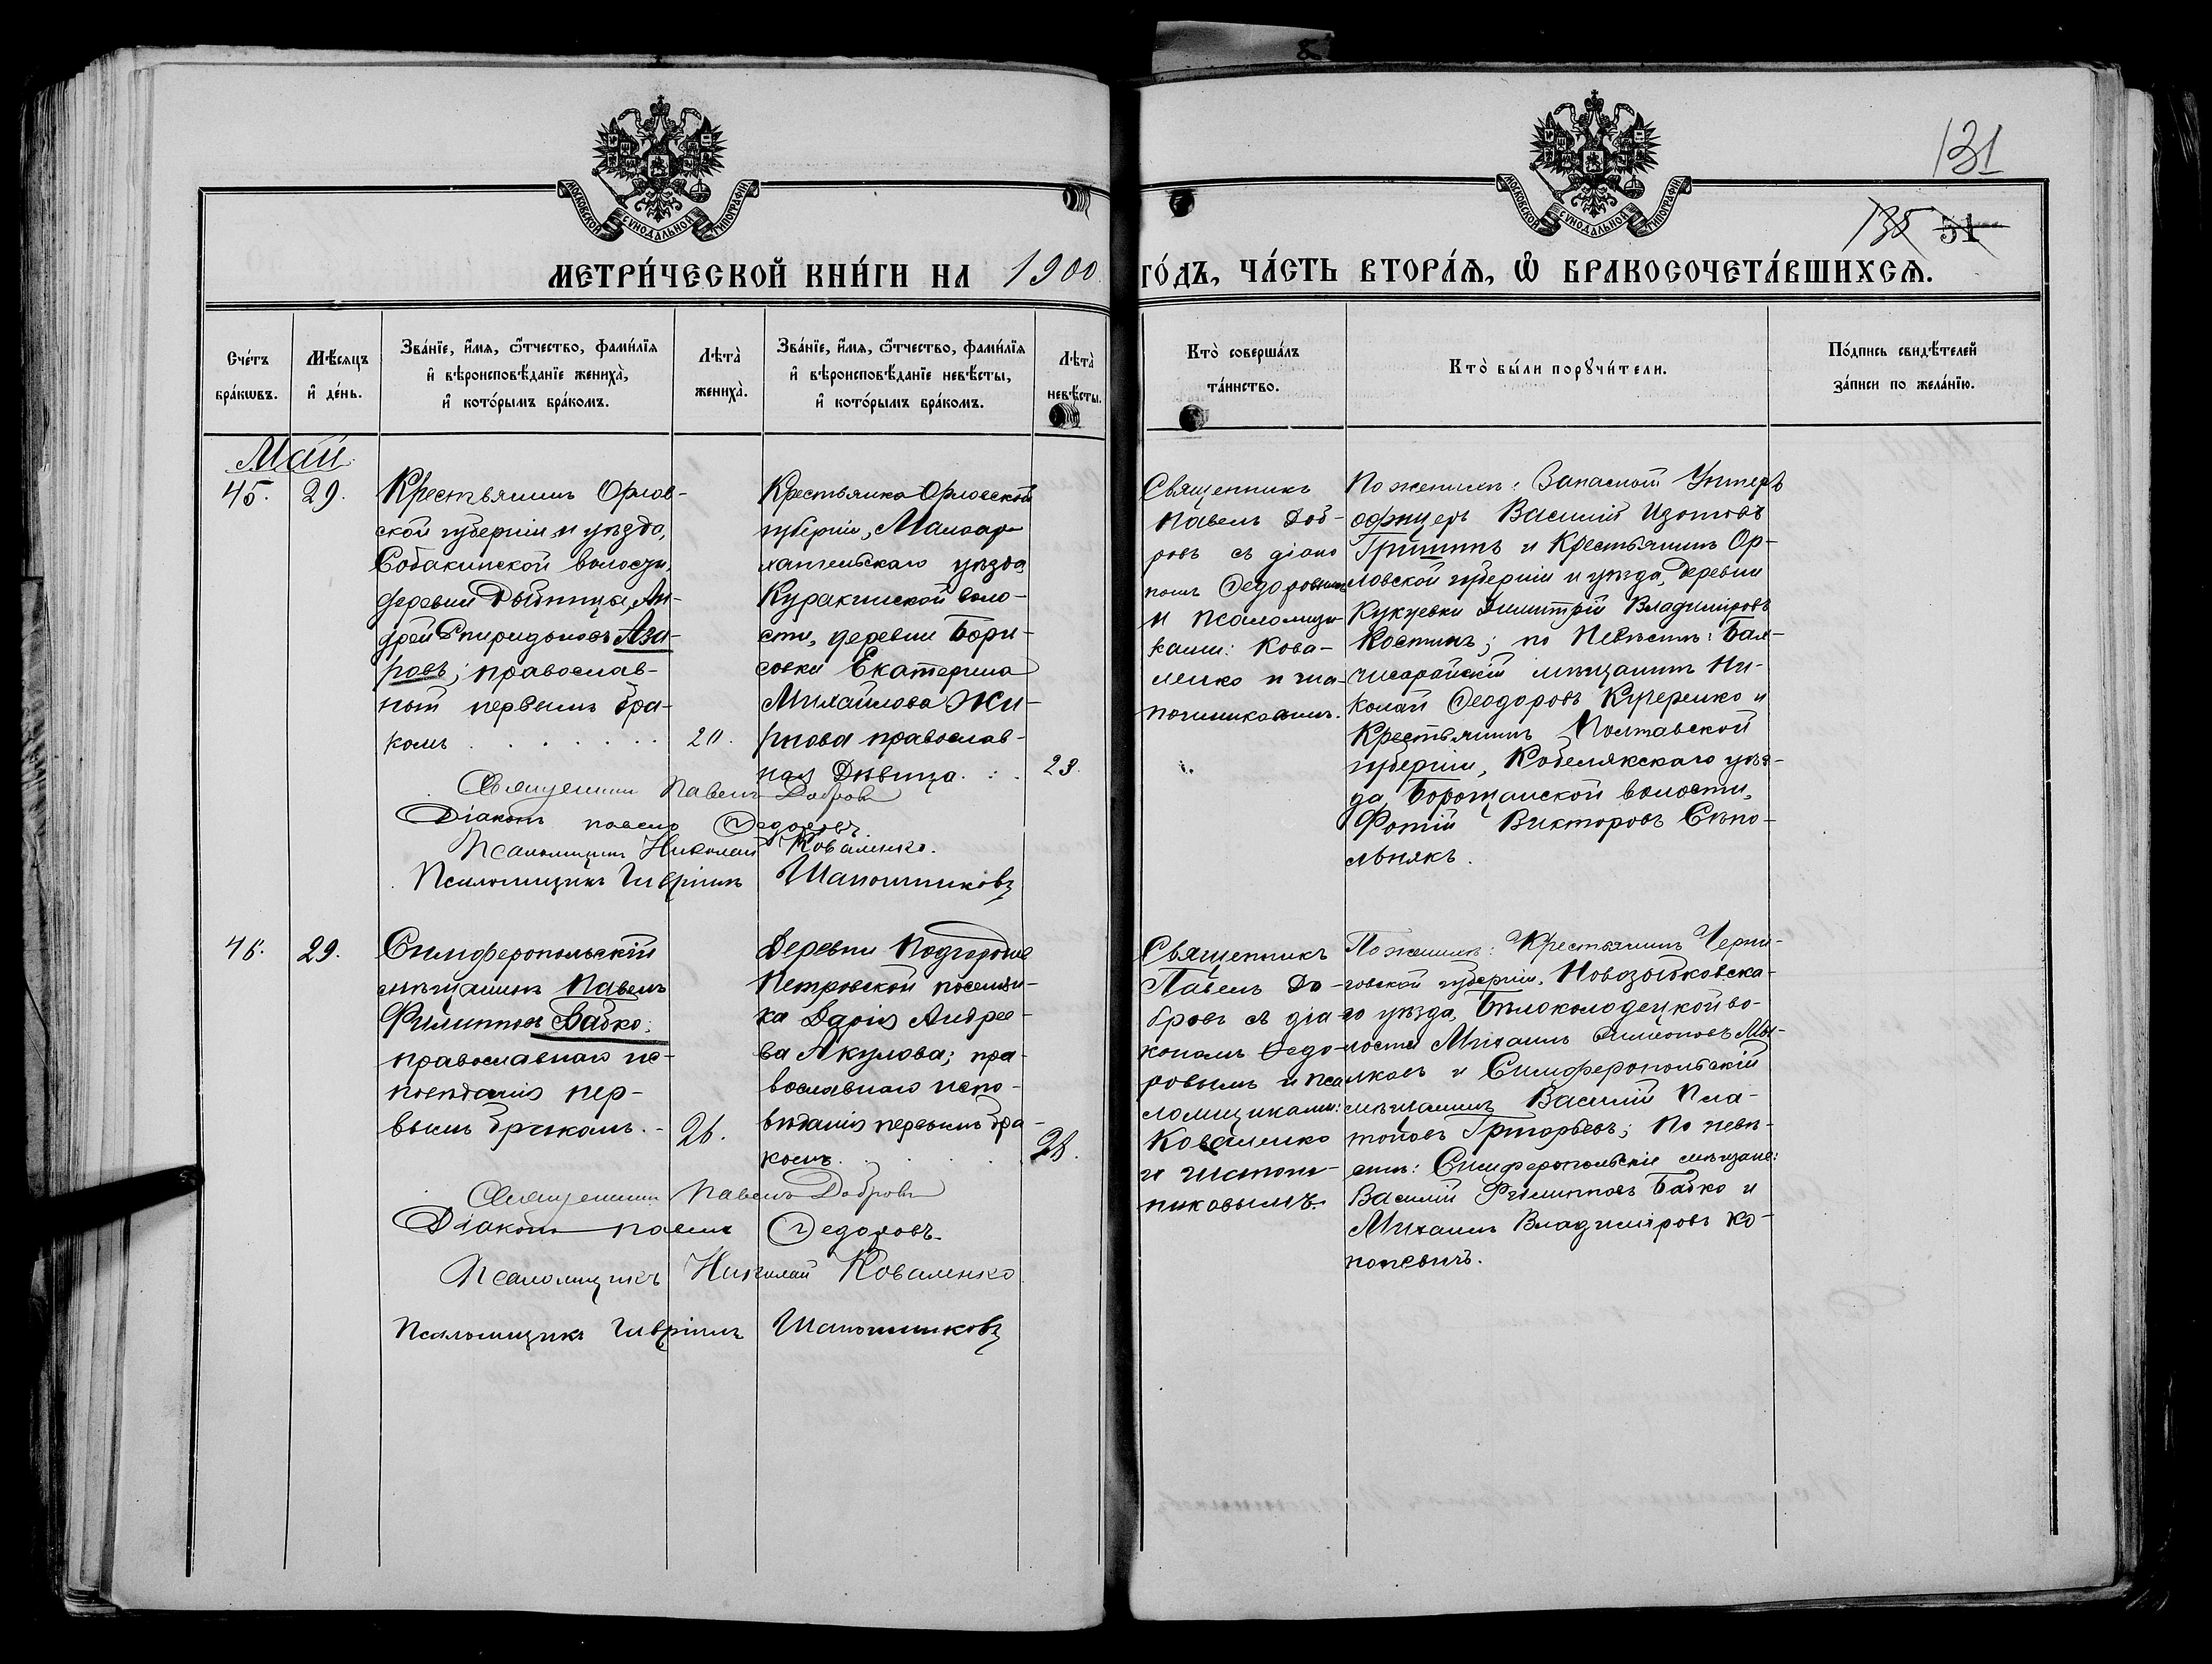 131
135 51
МОСКОВСКОЙ СУНОДАЛЬНОЙ ТИПОГРАФІИ
МОСКОВСКОЙ СУНОДАЛЬНОЙ ТИПОГРАФІИ
МЕТРИ́ЧЕСКОЙ КНИ́ГИ НА 1900 ГО́ДЪ, ЧА́СТЬ ВТОРА́Ѧ, Ѽ БРАКОСОЧЕТА́ВШИХСѦ.
Сче́тъ
бра́кѡвъ.
Мѣ́сяцъ
и҆ де́нь.
Зва́нїе, и҆́мя, ѻ҆́тчество, фами́лїя
и҆ вѣроисповѣ́данїе жениха̀,
и҆ кото́рымъ бра́комъ.
Лѣта̀
жениха̀.
Зва́нїе, и҆́мя, ѻ҆́тчество, фами́лїя
и҆ вѣроисповѣ́данїе невѣ́сты,
и҆ кото́рымъ бра́комъ.
Лѣта̀
невѣ́сты.
Кто̀ соверша́лъ
та́инство.
Кто̀ бы́ли порꙋчи́тели.
По́дпись свидѣ́телей
за́писи по жела́нїю.
Май
45. 29.
Крестьянинъ Орлов-
ской губерніи и уѣзда,
Собакинской волости,
деревни Дыбницы, Ан-
дрей Спиридоновъ Ази-
ровъ; православ-
ный первымъ бра-
комъ
20.
Крестьянка Орловской
губерніи, Малоар-
хангельскаго уѣзда
Куракинской воло-
сти, деревни Бори-
совки Екатерина
Михайлова Жи-
рнова православ-
ная Дѣвица.
23.
Священникъ
Павелъ Доб-
ровъ съ діако
номъ Федоровымъ
и псаломщи-
ками: Кова-
ленко и Ша-
пошниковымъ.
По женихѣ: Запасной Унтеръ
офицеръ Василій Изотовъ
Гришинъ и Крестьянинъ Ор-
ловской губерніи и уѣзда, деревни
Кукуевки Димитрій Владиміровъ
Костинъ; по Невѣстѣ: Бах-
чисарайскій мѣщанинъ Ни-
колай Феодоровъ Кучеренко и
Крестьянинъ Полтавской
губерніи, Кобелякскаго уѣз-
да, волости,
Фотій Викторовъ Сѣно-
льнякъ.
Священникъ Павелъ Добровъ
Діаконъ Павелъ Федоровъ.
Псаломщикъ Николай Коваленко.
Псаломщикъ Гавріилъ Шапошниковъ
46. 29.
Симферопольскій
мѣщанинъ Павелъ
Филипповъ Бабко;
православнаго ис-
повѣданія пер-
вымъ бракомъ.
26.
Деревни Подгородне
Петровской поселян-
ка Дарія Андрее-
ва Акулова; пра-
вославнаго испо-
вѣданія первымъ бра-
комъ.
28.
Священникъ
Павелъ До-
бровъ съ діа-
кономъ Федо-
ровымъ и пса
ломщиками:
Коваленко
и Шапош-
никовымъ.
По женихѣ: Крестьянинъ Черни-
говской губерніи, Новозыбковска-
го уѣзда, Бѣлоколодецкой во-
лости Михаилъ Симеоновъ Мы-
лковъ и Симферопольскій
мѣщанинъ Василій Пла-
тоновъ Григорьевъ; По невѣ-
стѣ: Симферопольскіе мѣщане:
Василій Филипповъ Бабко и
Михаилъ Владиміровъ Ко-
ноневичъ.
Священникъ Павелъ Добровъ
Діаконъ Павелъ Федоровъ.
Псаломщикъ Николай Коваленко
Псаломщикъ Гавріилъ Шапошниковъ